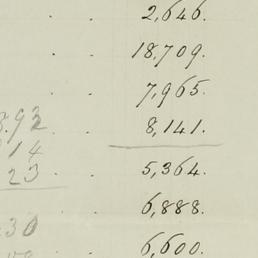 2,646.
18,709.
7,965.
8.92 8,141.
14
23 5,364.
6,888.
30
6,600.